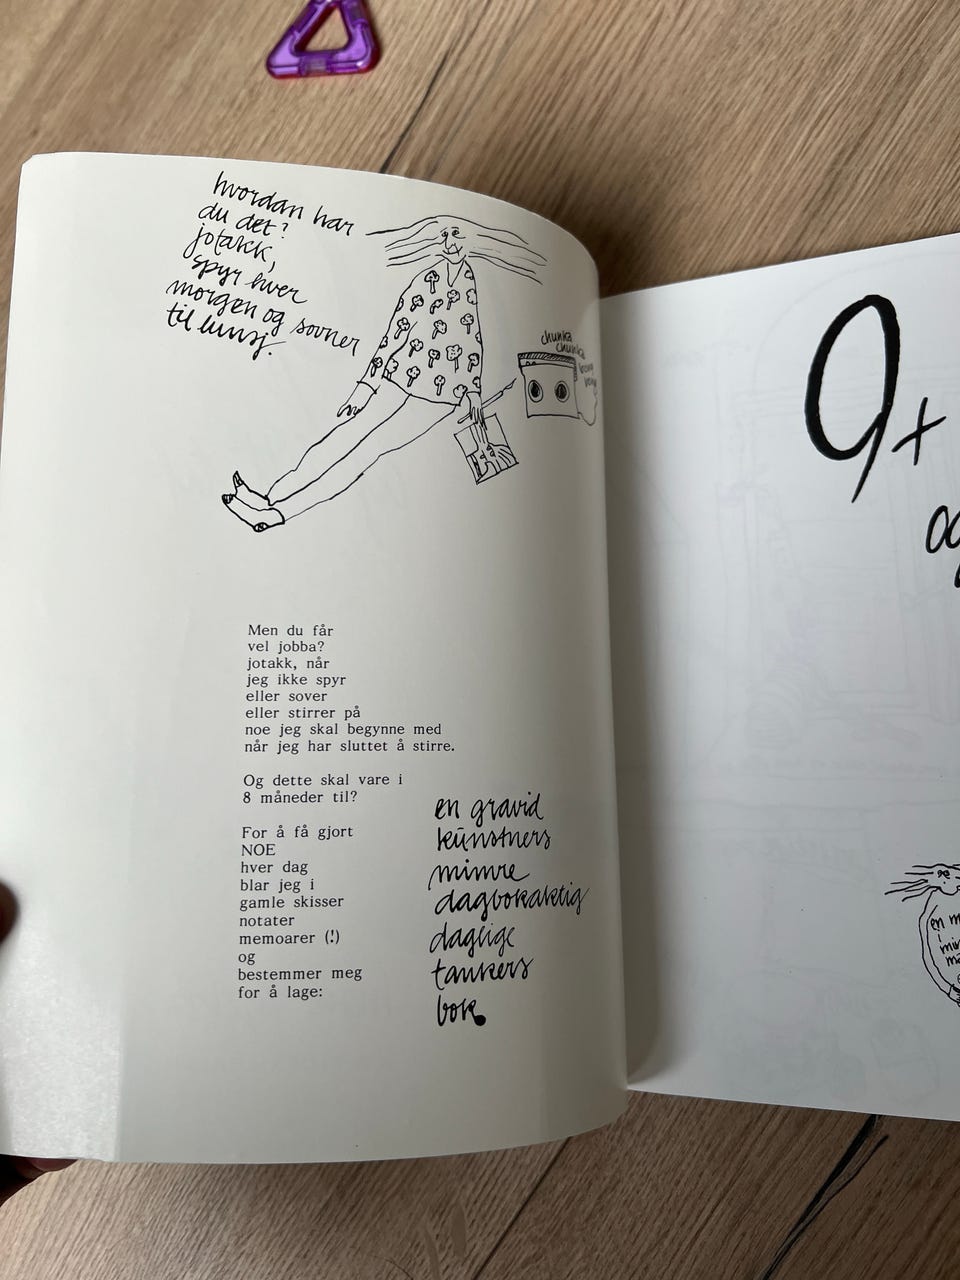 hvordan har
du det?
jotakk,
spyr hver
morgen og sovner
til lunsj.
chunka
chunka
Men du får
vel jobba?
jotakk, når
jeg ikke spyr
eller sover
eller stirrer på
noe jeg skal begynne med
når jeg har sluttet å stirre.
Og dette skal vare i
8 måneder til?
For å få gjort
NOE
hver dag
blar jeg i
gamle skisser
notater
memoarer (!)
og
bestemmer meg
for å lage:
en gravid
kunstners
mimre
dagbokaktig
daglige
tankers
bok.
9+